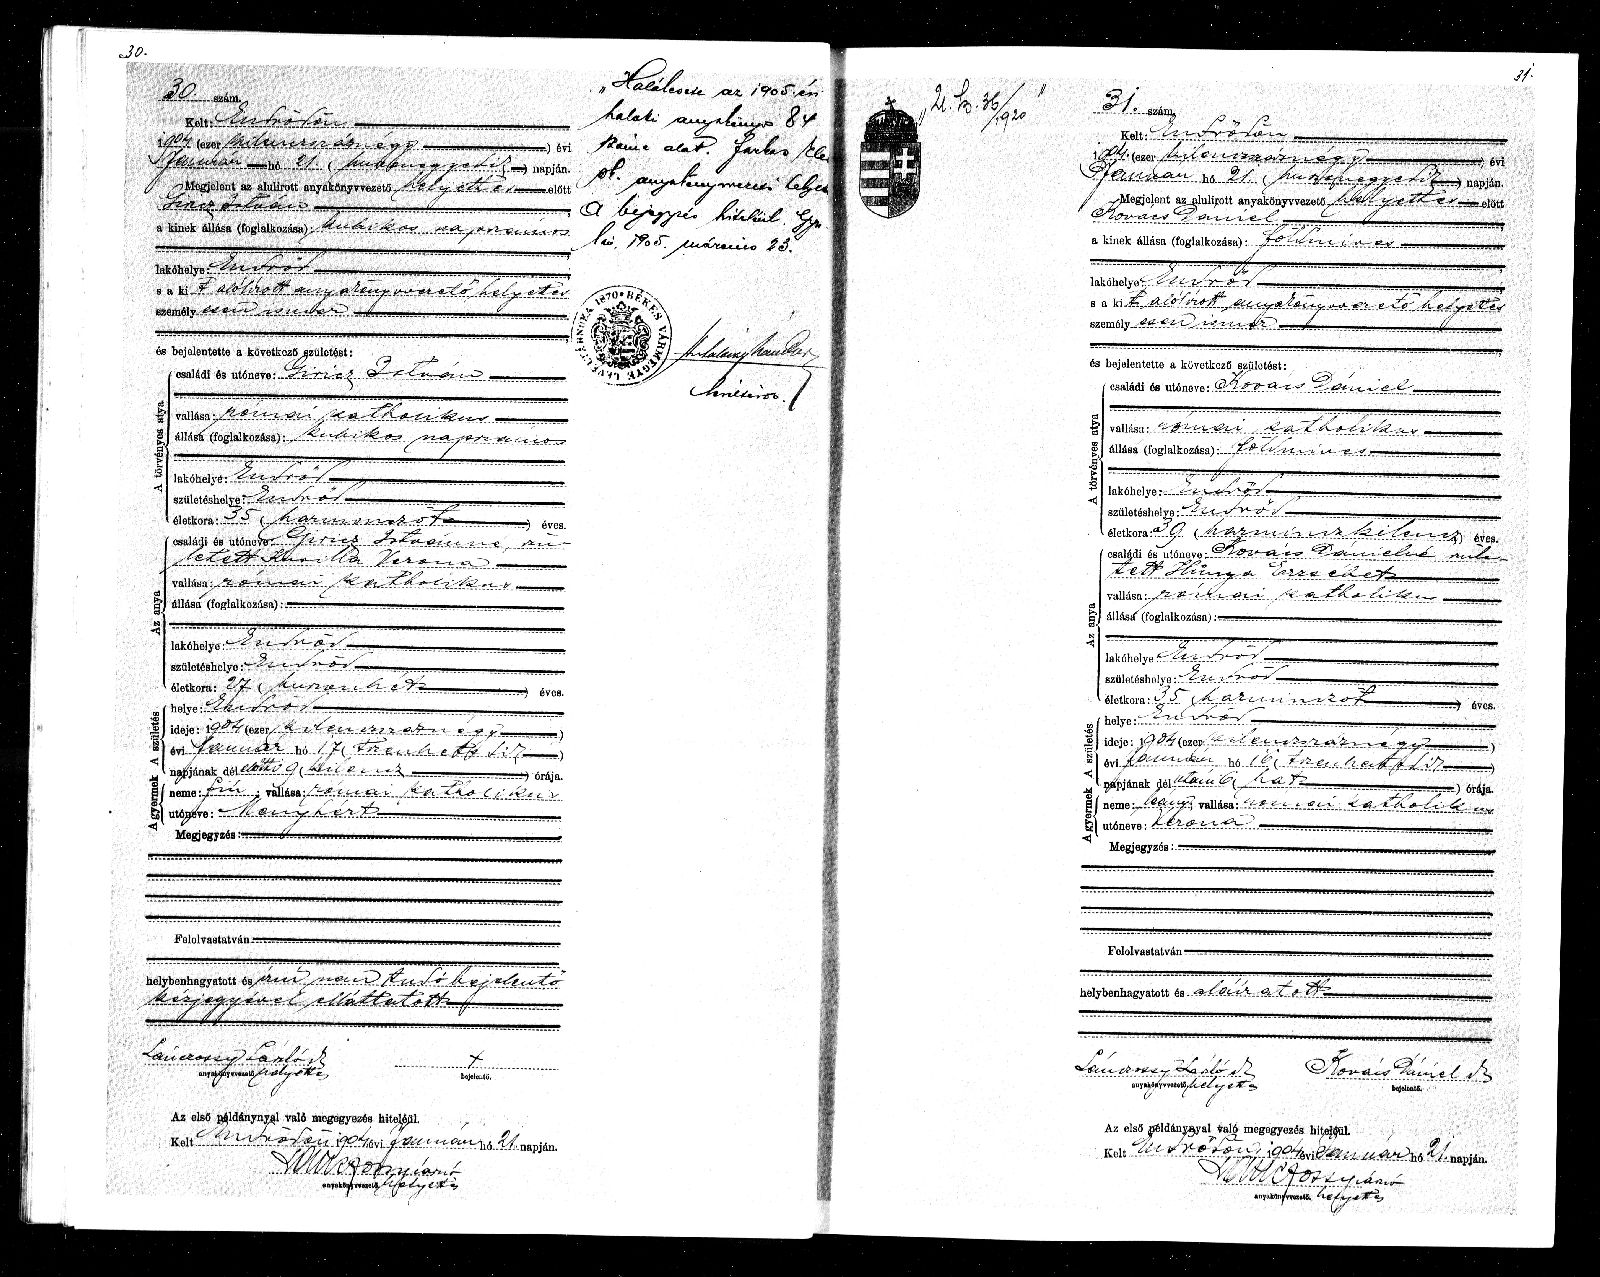 30.
30. szám.
Kelt: Endrődön
1904 (ezer kilenczszáznégy) évi
Januàr hó 21. (huszonegyedik) napján.
Megjelent az alulirott anyakönyvvezető helyettes előtt
Giricz István
a kinek állása (foglalkozása): kubikos napszámos
lakóhelye: Endrőd
s a kit alólirott anyakönyvvezető helyettes
személyesen ismer
és bejelentette a következő születést:
A törvényes atya
családi és utóneve: Giricz István
vallása: római katholikus
állása (foglalkozása): kubikos napszamos
lakóhelye: Endrőd
születéshelye: Endrőd
életkora: 35 (harminczöt) éves.
Az anya
családi és utóneve: Giricz Istvánné, szü-
letett Verona
vallása: római katholikus
állása (foglalkozása):
lakóhelye: Endrőd
születéshelye: Endrőd
életkora: 27 (huszonhét) éves.
A gyermek A születés
helye: Endrőd
ideje: 1904 (ezer kilenczszáznégy)
évi Januàr hó 17 (tizenhetedik)
napjának dél előtt 9 (kilencz) órája.
neme: fiú; vallása: római katholikus
utóneve: Menyhért
Megjegyzés:
Felolvastatván
helybenhagyatott és irni nem tudó bejelentő
kézjegyével elláttatott
László s.k. +
anyakönyvvezető helyettes bejelentő.
Az első példánynyal való megegyezés hiteléül.
Kelt Endrődön 1904 évi Január hó 21. napján.
anyakönyvvezető. helyettes
„Halálesete az 1905. évi
halotti anyakönyv 84
száma alatt. Farkas
anyakönyvvezető helyettes
A bejegyzés hiteléül. Gyu-
lán. 1905. március 23.
BÉKÉS VÁRMEGYE LEVÉLTÁRNOKA 1870
levéltáros.
31.
36/920"
31. szám.
Kelt: Endrődön
1904. (ezer kilenczszáznégy) évi
Januàr hó 21. (huszonegyedik) napján.
Megjelent az alulirott anyakönyvvezető helyettes előtt
Kovács Dániel
a kinek állása (foglalkozása): földmives
lakóhelye: Endrőd
s a kit alólirott anyakönyvvezető helyettes
személyesen ismer
és bejelentette a következő születést:
A törvényes atya
családi és utóneve: Kovács Dániel
vallása: római katholikus
állása (foglalkozása): földmives
lakóhelye: Endrőd
születéshelye: Endrőd
életkora: 39 (harminczkilencz) éves.
Az anya
családi és utóneve: Kovács Dánielné szüle-
tett Hunya Erzsébet
vallása: római katholikus
állása (foglalkozása):
lakóhelye: Endrőd
születéshelye: Endrőd
életkora: 35 (harminczöt) éves.
A gyermek A születés
helye: Endrőd
ideje: 1904 (ezer kilenczszáznégy)
évi Januàr hó 16 (tizenhatodik)
napjának dél után 6 (hat) órája.
neme: leány; vallása: római katholikus
utóneve: Verona
Megjegyzés:
Felolvastatván
helybenhagyatott és aláiratott
László s.k. Kovács Dániel s.k.
anyakönyvvezető helyettes bejelentő.
Az első példánynyal való megegyezés hiteléül.
Kelt Endrődön 1904 évi Január hó 21. napján.
anyakönyvvezető. helyettes